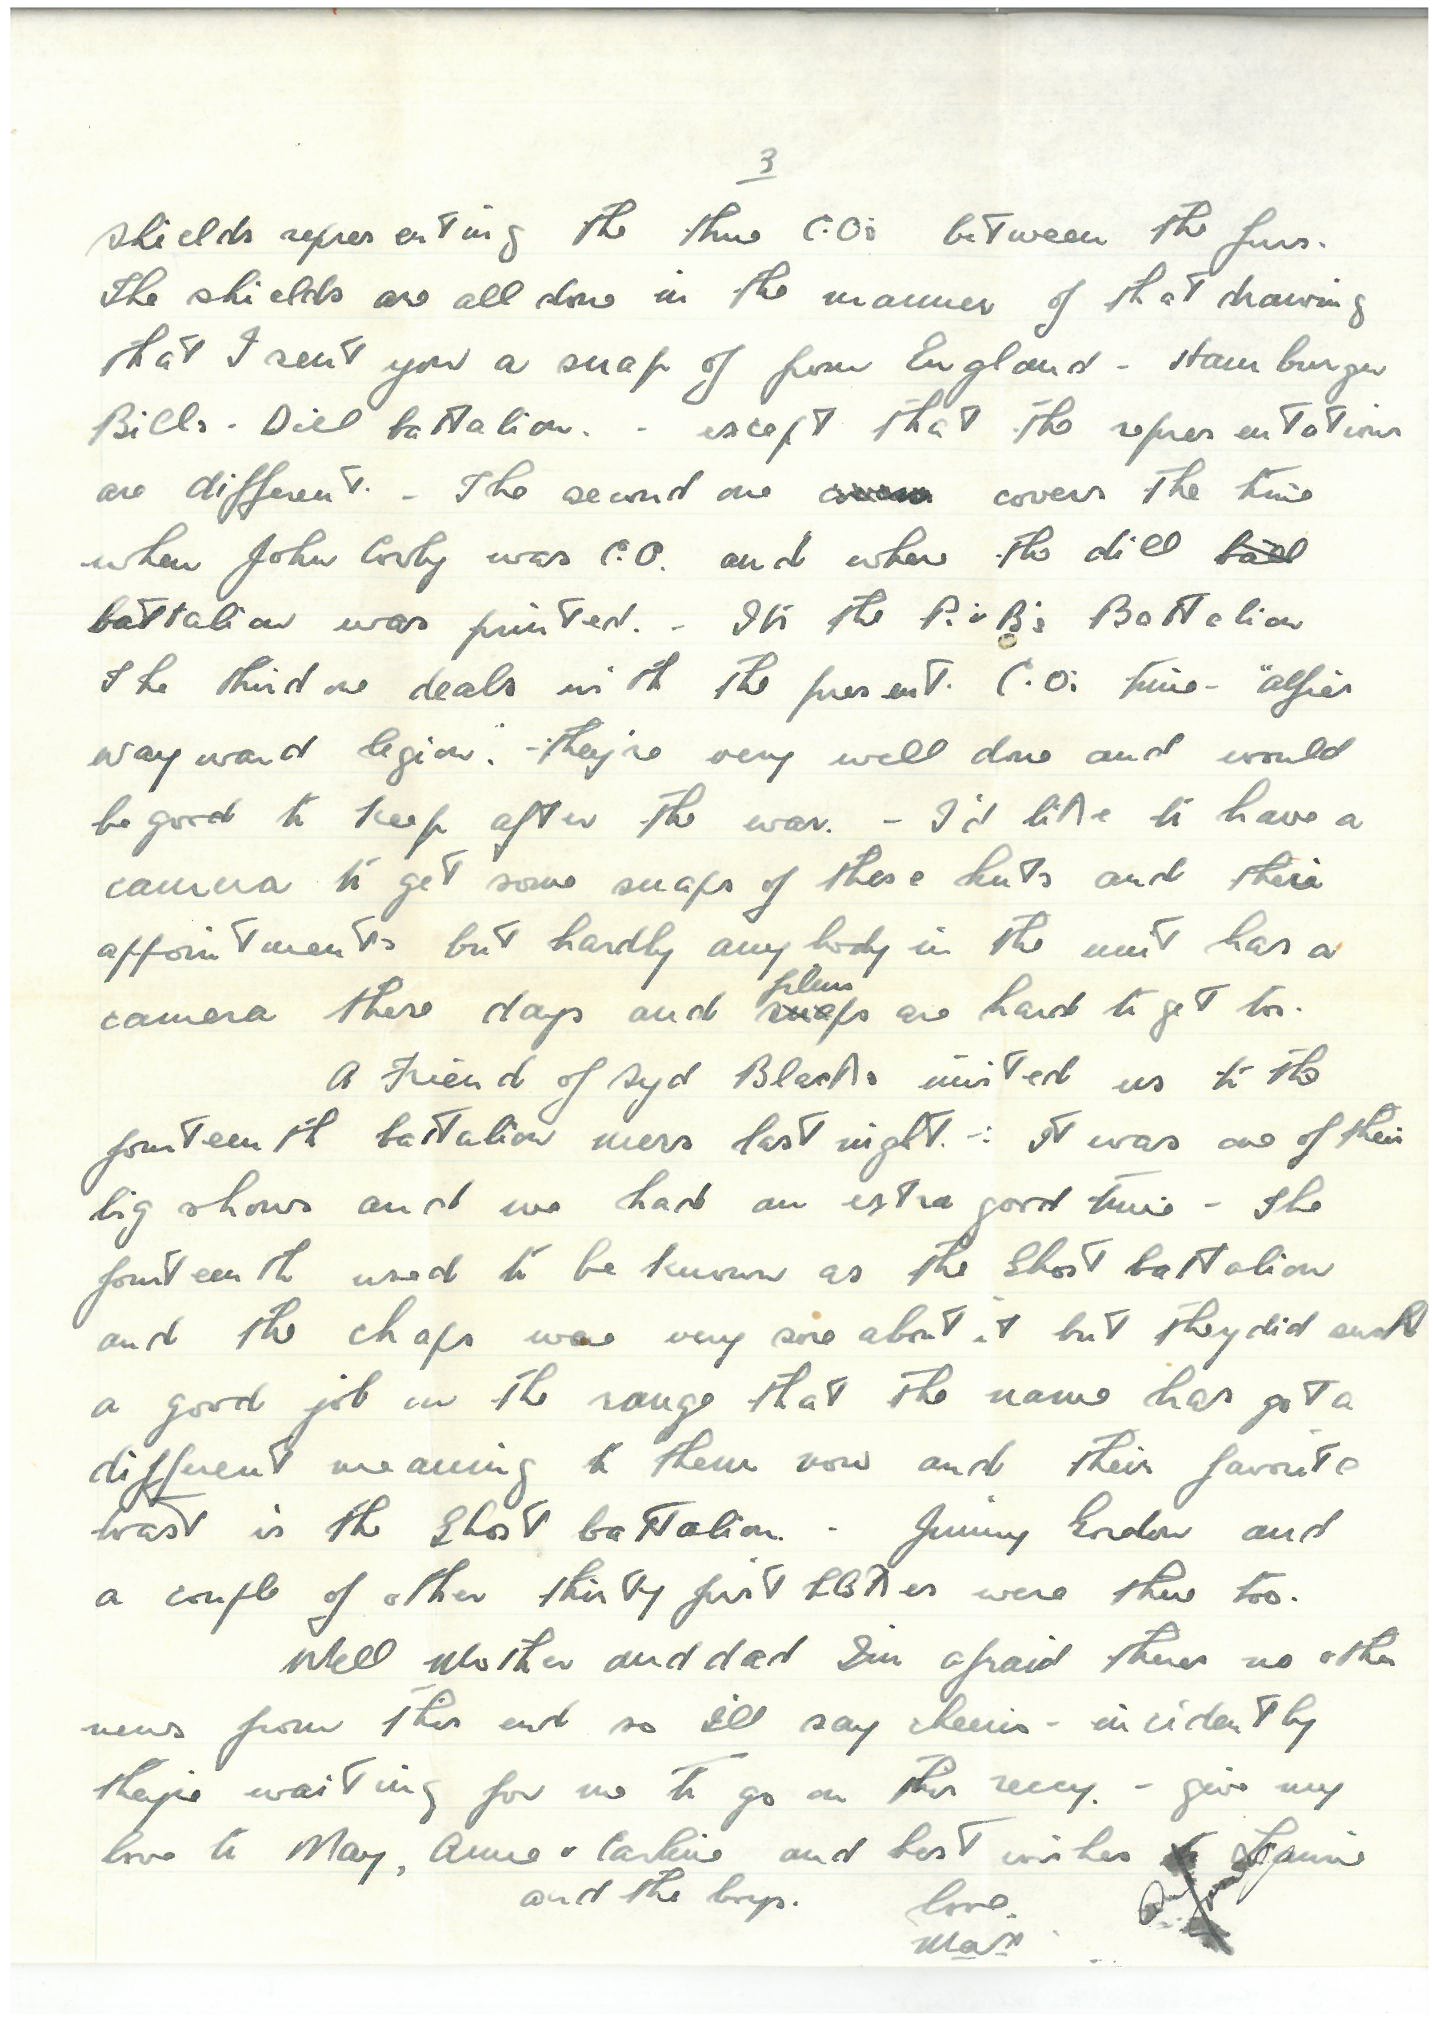 3
shields representing the three C.O's between the furs.
The shields are all done in the manner of that drawing
that I sent you a snap of from England - Hamburger
Bills - Dill battalion. - except that the representations
are different. - The second one covers the time
when John Corby was C.O. and where the dill ball
battalion was printed. - It's the Battalion
The third one deals with the present C.O's time - "Alfies
wayward legion". - they're very well done and would
be good to keep after the war. - I'd like to have a
camera to get some snaps of these huts and their
appointments but hardly anybody in the unit has a
films
camera these days and snaps are hard to get too.
A Friend of Syd Blacks invited us to the
fourteenth battalion mess last night. - It was one of their
big shows and we had an extra good time - The
fourteenth used to be known as the Ghost battalion
and the chaps were very sore about it but they did such
a good job on the range that the name has got a
different meaning to them now and their favorite
toast is the Ghost battalion. - Jimmy Gordon and
a couple of other thirty first were there too.
Well Mother and dad I'm afraid theres no other
news from this end so I'll say cheerio - incidently
they're waiting for me to go on this reccy. - give my
love to May, Anne & and best wishes to
and the boys.
love.
Max